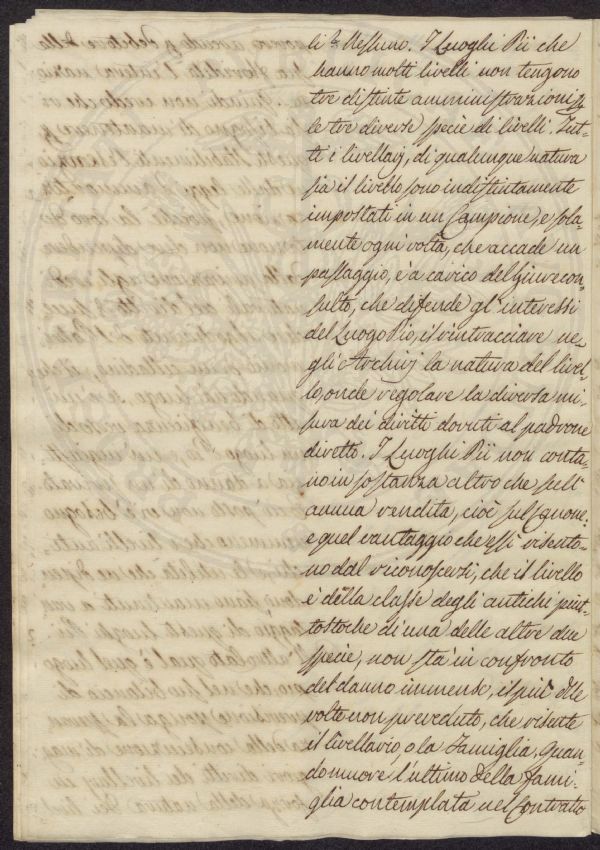 li? Nessuno. I Luoghi Pii che
hanno molti livelli non tengono
tre distinte amministrazioni p
le tre diverse specie di livelli. Tut-
ti i livellarj, di qualunque natura
sia il livello sono indistintamente
impostati in un Campione, e sola-
mente ogni volta, che accade un
passaggio, è a carico del Giurecon-
sulto, che difende gl'interessi
del Luogo Pio, il rintracciare ne-
gli Archivj la natura del livel-
lo, onde regolare la diversa mi-
sura dei diritti dovuti al padrone
diretto. I Luoghi Pii non conta-
no in sostanza altro che sull'
annua rendita, cioè sul Canone:
e quel vantaggio che essi risento-
no dal riconoscersi, che il livello
è della classe degli antichi piut-
tostoche di una delle altre due
specie, non sta in confronto
del danno immenso, il più delle
volte non preveduto, che risente
il livellario, o la Famiglia. Quan-
do muore l'ultimo della fami-
glia contemplata nel Contratto